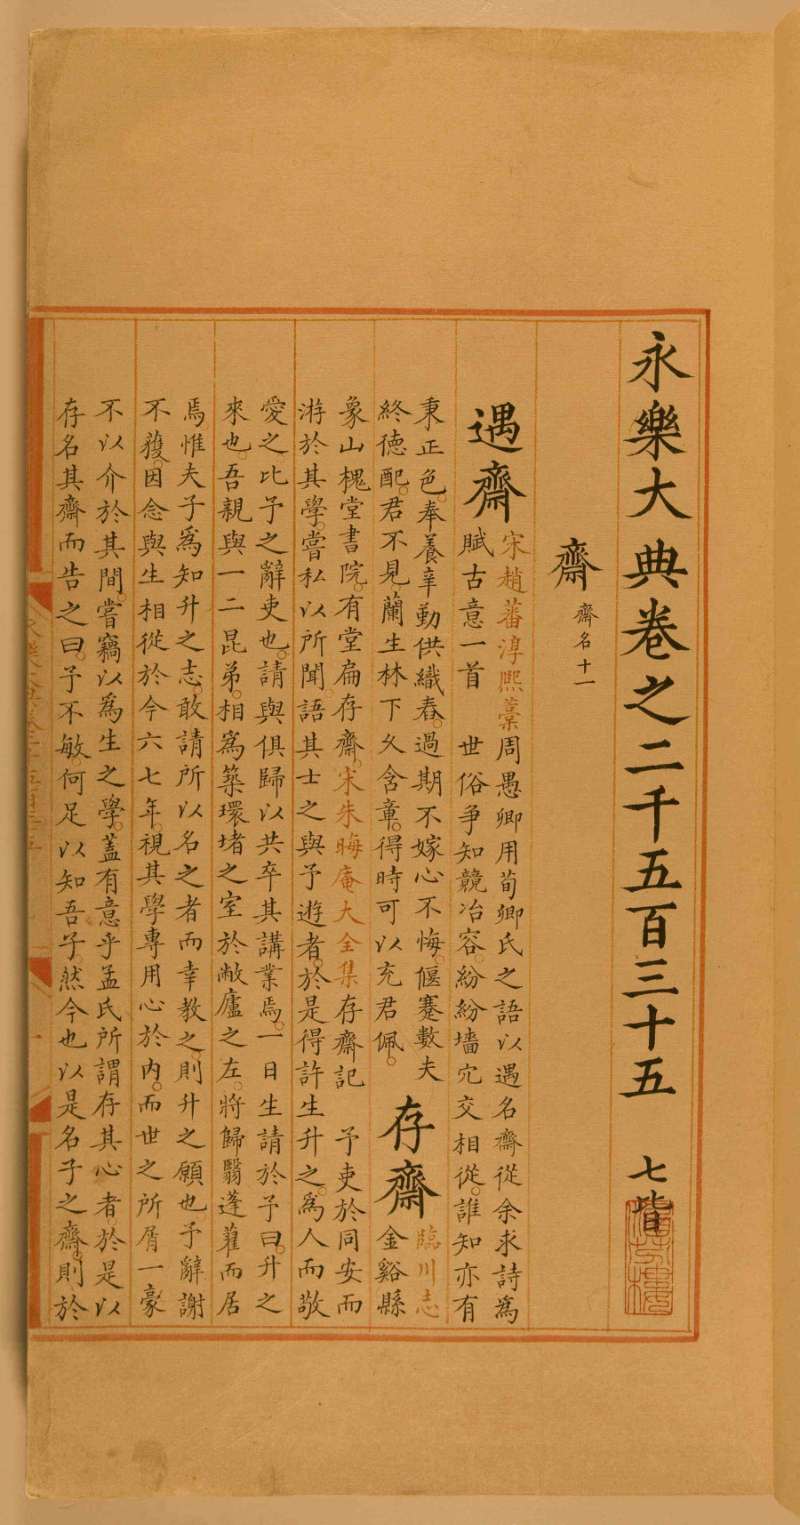 永樂大典卷之二千五百三十五 七皆
齋 齋名十一
遇齋
宋趙蕃淳熙藁周愚卿用荀卿氏之語以遇名齋從余求詩為
賦古意一首 世俗争知競冶容。紛紛墻穴交相從。誰知亦有
秉正色。奉養辛勤供織舂。過期不嫁心不悔。偃蹇數夫
終德配。君不見蘭生林下久含章。得時可以充君佩。
存齋
臨川志
金谿縣
象山槐堂書院。有堂扁存齋。宋朱晦庵大全集存齋記 予吏於同安而
游於其學。嘗私以所聞語其士之與予遊者。於是得許生升之。為人而敬
愛之比予之辭吏也。請與俱歸以共卒其講業焉。一日生請於予曰。升之
來也。吾親與一二昆弟。相為築環堵之室於敝廬之左。將歸翳蓬藋而居
焉惟夫子為知升之志。敢請所以名之者而幸教之。則升之願也。予辭謝
不獲。因念與生相從於今六七年。視其學專用心於内。而世之所屑一豪
不以介於其間。嘗竊以為生之學。蓋有意乎孟氏所謂存其心者。於是以
存名其齋而告之曰。予不敏。何足以知吾子。然今也以是名子之齋。則於